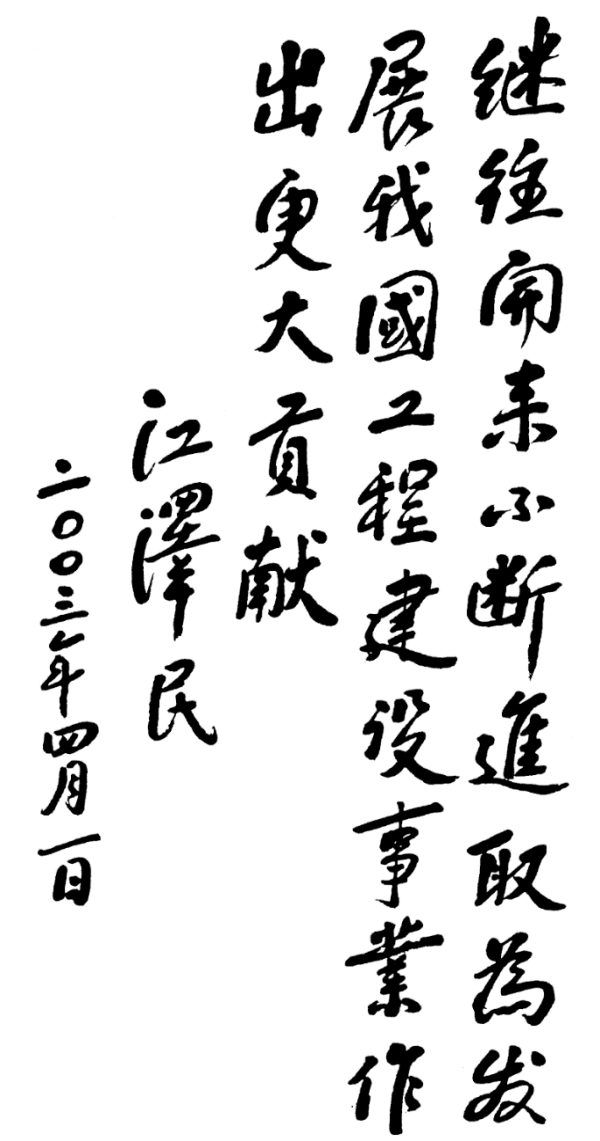 继往开来不断進取為发
展我國工程建设事業作
出更大贡献
江澤民
二00三年四月一日